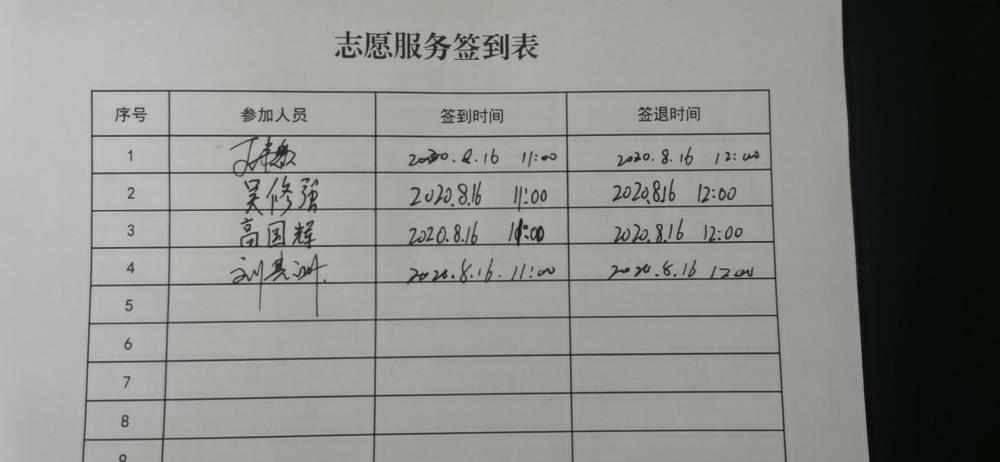 志愿服务签到表
序号 参加人员 签到时间 签退时间
1 2020.8.16 11:00 2020.8.16 12:00
2 吴修强 2020.8.16 11:00 2020.8.16 12:00
3 高国辉 2020.8.16 11:00 2020.8.16 12:00
4 刘其洲. 2020.8.16. 11:00 2020.8.16 12:00
5
6
7
8
9